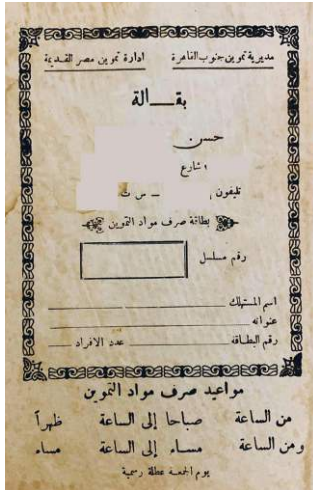 مديرية تموين جنوب القاهرة    ادارة تموين مصر القديمة
بقـــالة
حسن
١ شارع
تليفون : – س ت
بطاقة صرف مواد التموين
رقم مسلسل
اسم المستهلك
عنوانه
رقم البطاقه    عدد الافراد
مواعيد صرف مواد التموين
من الساعة    صباحا إلى الساعة    ظهراً
ومن الساعة    مساء إلى الساعة    مساء
يوم الجمعة عطلة رسمية